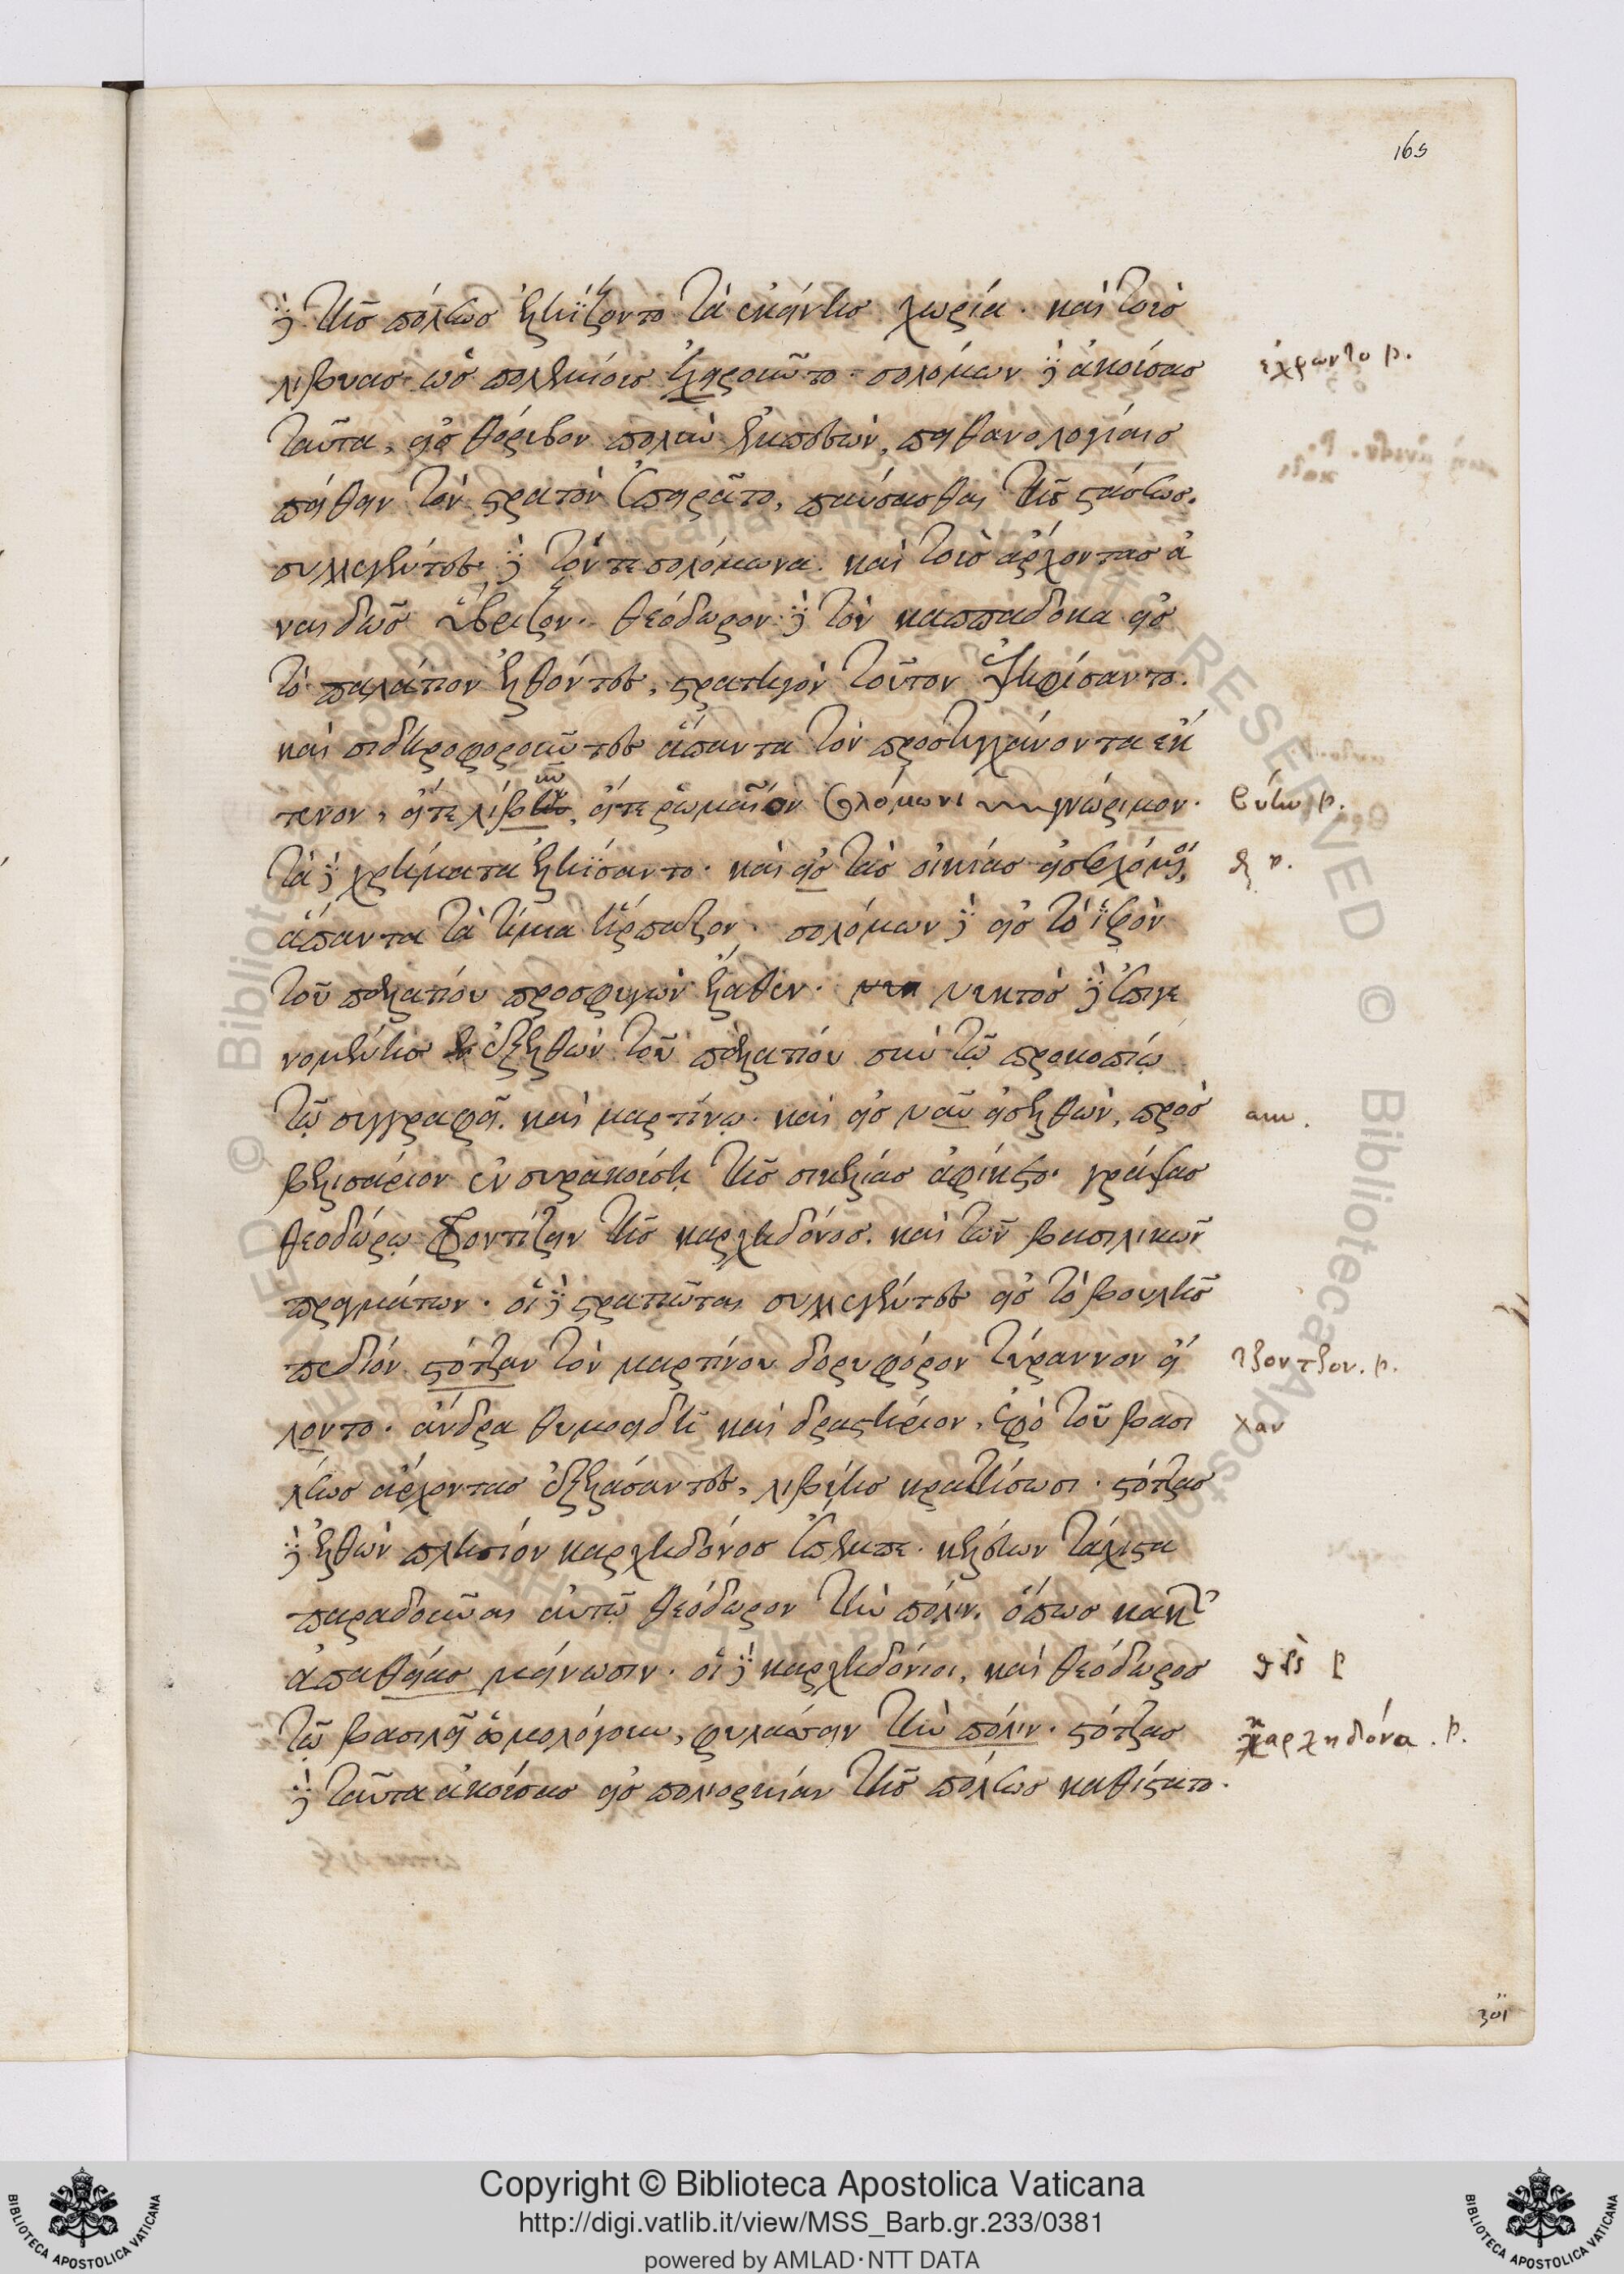 165
δὲ τῆς πόλεως ἐληΐζοντο τὰ ἐκεῖνης χωρία. καὶ τοῖς
λίβυας ὡς πολεμίοις ἐχειροῦντο. σολόμων δὲ ἀκούσας
ταῦτα, εἰς θόρυβον πολὺν ἐκπεσὼν, πειθανολογίαις
πείθειν τὸν στρατὸν ἐπειρᾶτο, παύσασθαι τῆς στάσεως.
συλλεγέντες δὲ τόν τε σολόμωνα. καὶ τοὺς ἄρχοντας ἀ
ναιδῶς ὕβριζον. θεόδωρον δὲ τὸν καππάδοκα εἰς
τὸ παλάτιον ἐλθόντες, στρατηγὸν τοῦτον ἐψηφίσαντο.
καὶ σιδηροφοροῦντες ἅπαντα τὸν προστυγχάνοντα ἔκ
τενον, εἴτε λίβυν, εἴτε ῥωμαῖον σολόμωνι γνώριμον.
τὰ δὲ χρήματα ἐληΐσαντο. καὶ εἰς τὰς οἰκίας εἰσερχόμενοι,
ἅπαντα τὰ τίμια ἥρπαζον. σολόμων δὲ εἰς τὸ ἱερὸν
τοῦ παλατίου προσφυγὼν ἔλαθεν. νυκτὸς δὲ ἐπιγε
νομένης ἐξελθὼν τοῦ παλατίου σὺν τῷ προκοπίῳ
τῷ συγγραφεῖ. καὶ μαρτίνῳ. καὶ εἰς ναῦν εἰσελθὼν, πρὸς
βελισάριον ἐν συρακούσῃ τῆς σικελίας ἀφίκετο. γράψας
θεοδώρῳ φροντίζειν τῆς καρχηδόνος. καὶ τῶν βασιλικῶν
πραγμάτων. οἱ δὲ στρατιῶται συλλεγέντες εἰς τὸ βούλης
πεδίον στότζαν τὸν μαρτίνου δορυφόρον τύραννον εἵ
λοντο. ἄνδρα θυμοειδῆ καὶ δραστήριον, ἐφ' ᾧ τοῦ βασι
λέως ἄρχοντας ἐξελάσαντες, λιβύης κρατήσωσι. στότζας
δὲ ἐλθὼν πλησίον καρχηδόνος ἔπεμπε. κελεύων τάχιστα
παραδοῦναι αὐτῷ θεόδωρον τὴν πόλιν. ὅπως κακῶν
ἀπαθεῖας μείνωσιν. οἱ δὲ καρχηδόνιοι, καὶ θεόδωρος
τῷ βασιλεῖ ὡμολόγουν, φυλάττειν τὴν πόλιν. στότζας
δὲ ταῦτα ἀκούσας εἰς πολιορκίαν τῆς πόλεως καθίστατο.
ἐχρῶντο p.
βύων p.
αυν.
τζοντζον. p.
χαν
θεῖς p
καρχηδόνα. p.
301
Copyright © Biblioteca Apostolica Vaticana
http://digi.vatlib.it/view/MSS_Barb.gr.233/0381
powered by AMLAD·NTT DATA
BIBLIOTECA APOSTOLICA VATICANA
BIBLIOTECA APOSTOLICA VATICANA